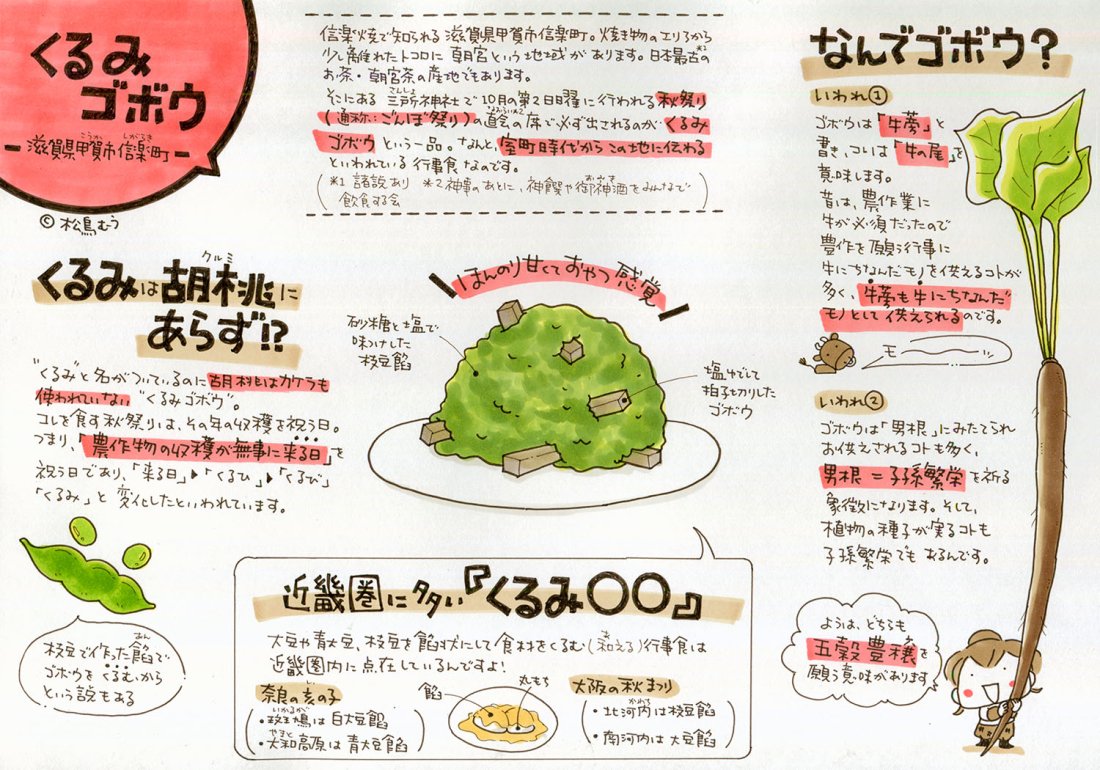 くるみ
ゴボウ
滋賀県甲賀市信楽町
こうか
しがらき
©松鳥むう
信楽焼で知られる滋賀県甲賀市信楽町。焼き物のエリアから
少し離れたトコロに朝宮という地域があります。日本最古の*1
お茶・朝宮茶の産地でもあります。
さんしょ
そこにある三所神社で10月の第2日曜に行われる秋祭り
なおらい*2
(通称:ごんぼ祭り)の直会の席で必ず出されるのがくるみ
ゴボウという一品。なんと、室町時代からこの地に伝わる
といわれている行事食なのです。
(*1 諸説あり *2 神事のあとに、神饌や御神酒をみんなで
飲食する会)
くるみは胡桃に
クルミ
あらず!?
"くるみ"と名がついているのに胡桃はカケラも
使われていない"くるみゴボウ"。
コレを食す秋祭りは、その年の収穫を祝う日。
つまり、「農作物の収穫が無事に来る日」を
祝う日であり、「来る日」▶「くるひ」▶「くるび」
「くるみ」と変化したといわれています。
あん
枝豆で作った餡で
ゴボウをくるむから
という説もある
ほんのり甘くておやつ感覚
砂糖と塩で
味つけした
枝豆餡
塩ゆでして
拍子切りした
ゴボウ
近畿圏に多い『くるみ〇〇』
大豆や青大豆、枝豆を餡状にして食材をくるむ(和える)行事食は
近畿圏内に点在しているんですよ!
奈良の亥の子
いかるが
・斑鳩は白大豆餡
やまと
・大和高原は青大豆餡
餡
丸もち
大阪の秋まつり
かわち
・北河内は枝豆餡
・南河内は大豆餡
なんでゴボウ?
いわれ①
ゴボウは「牛蒡」と
書き、コレは「牛の尾」を
意味します。
昔は、農作業に
牛が必須だったので
豊作を願う行事に
牛にちなんだモノを供えるコトが
多く、牛蒡も牛にちなんだ
モノとして供えられるのです。
モー
いわれ②
ゴボウは「男根」にみたてられ
お供えされるコトも多く、
男根=子孫繁栄を祈る
象徴になります。そして、
植物の種子が実るコトも
子孫繁栄でもあるんです。
ようは、どちらも
五穀豊穣を
願う意味があります